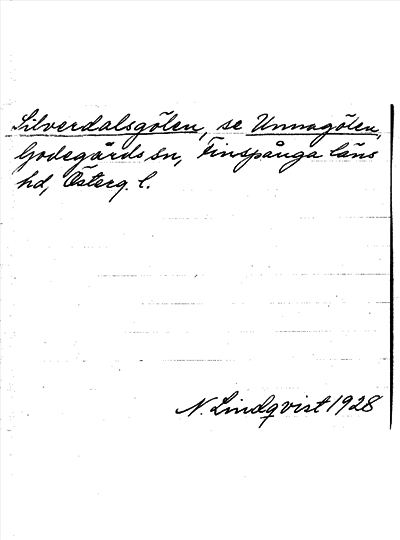 Silverdalsgölen, se Unnagölen,
Godegårds sn, Finspånga läns
hd, Österg. l.
N. Lindqvist 1928